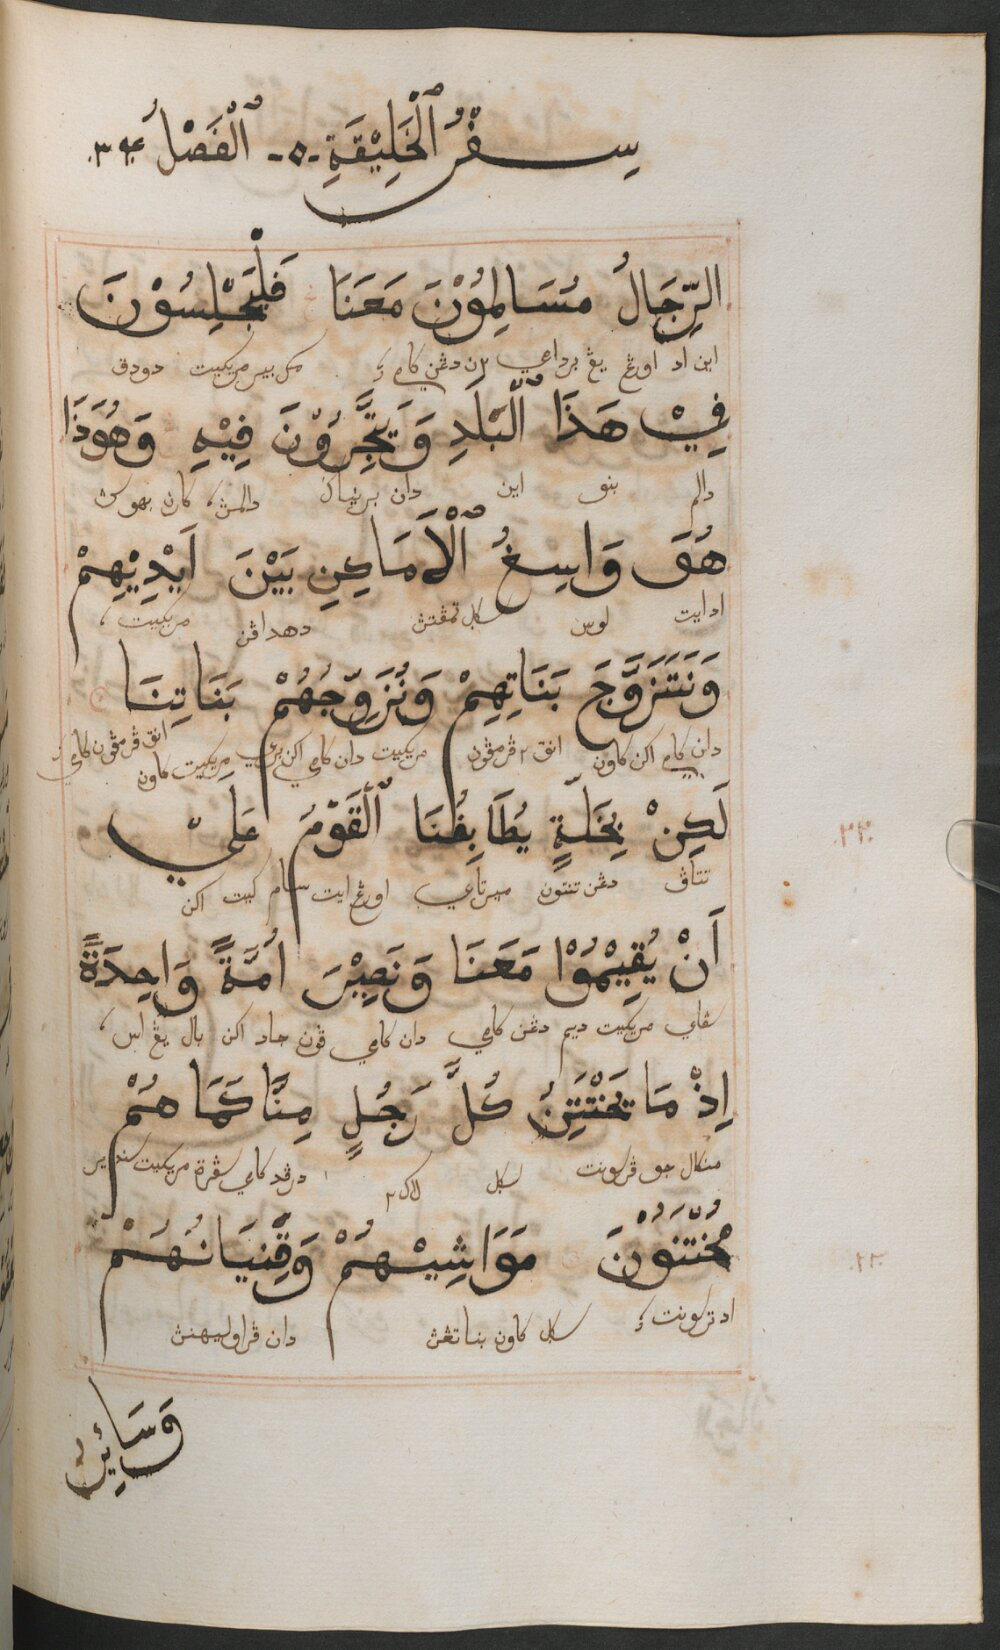 سِفْرُ ٱلْخَلِيْقَةِ -٥- ٱلْفَصْلُ ٣٤
الرِّجَالُ مُسَالِمُوْنَ مَعَنَا فَلْيَجْلِسُوْنَ
اين اد اورڠ يڠ برداعي ٢ن دڠن كامي مريكيت دودق
فِيْ هَذَا ٱلْبَلَدِ وَيَتَّجِرُوْنَ فِيْهِ وَهُوَذَا
دالم بنو اين دان برنياݢ دالمڽ، كارن
هُوَ وَاسِعُ ٱلْأَمَاكِنِ بَيْنَ اَيْدِيْهِمْ
اد ايت لوس سكل تمڤتڽ دهداڤن مريكيت،
وَنَتَزَوَّجَ بَنَاتِهِمْ وَنُزَوِّجُهُمْ بَنَاتِنَا
دان كامي اكن كاون انق ٢ ڤرمڤون مريكيت دان كامي اكن بري مريكيت كاون انق ڤرمڤون كامي
لَكِنْ بِخَلَّةٍ يُطَابِقُنَا ٱلْقَوْمُ عَلَيّ
تتاڤ دڠن تنتون ميرتاءي اورڠ ايت سام كيت اكن
.٢٢.
أَنْ يُقِيْمُوْا مَعَنَا وَنَصِيْرَ اُمَّةً وَاحِدَةً
سڤاي مريكيت ديم دڠن كامي دان كامي ڤون جاد اكن بال يڠ اس،
اِذْ مَا يَخْتَتِنُ كُلَّ رَجُلٍ مِنَّا كَمَا هُمْ
منكال جو ڤرسونت سكل لاك ٢ درڤد كامي سڤرة مريكيت سنديرِ
مُخْتَتَنُوْنَ مَوَاشِيْهُمْ وَقِنْيَانُهُمْ
.٢٣.
اد ترسونت سكل كاون بناتڠڽ دان ڤراوليهنڽ
وَسَائِرُ